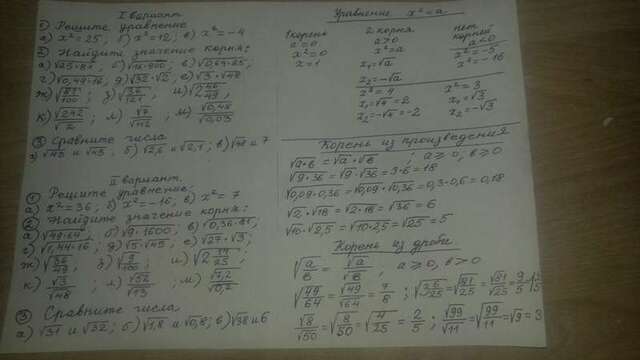 I вариант
① Решите уравнение
а) x²=25, б) x²=12; в) x²=-4
② Найдите значение корня:
а) √25·81, б) √16·900, в) √0,64·25,
г) √0,49·16, д) √32·√2, е) √3·√48
ж) √81/100, з) √36/121, и) √2 46/49,
к) √242/√2; л) √7/√112; м) √0,48/√0,03
③ Сравните числа
б) √2,2 и √2,1; в) √48 и 7
II вариант.
① Решите уравнение:
а) x²=36; б) x²=-16, в) x²=7
② Найдите значение корня:
а) √49·64; б) √9·1600, в) √0,36·81,
г) √1,44·16; д) √5·√45; е) √27·√3;
ж) √36/49, з) √9/100, и) √2 14/25;
к) √3/√48; л) √52/√13; м) √7,2/√0,2
③ Сравните числа
а) √31 и √32; б) √1,8 и √0,8; в) √38 и 6
Уравнение x²=a
1 корень
a=0
x²=0
x=1
2 корня
a>0
x²=a
x₁=√a
x₂=-√a
x²=4
x₁=√4=2
x₂=-√4=-2
нет корней
a<0
x²=-5
x²=-16
x²=3
x₁=√3
x₂=-√3
Корень из произведения
√a·b=√a·√b, a≥0, b≥0
√9·36=√9·√36=3·6=18
√0,09·0,36=√0,09·√0,36=0,3·0,6=0,18
√2·√18=√2·18=√36=6
√10·√2,5=√10·2,5=√25=5
Корень из дроби
√a/b=√a/√b, a≥0, b>0
√49/64=√49/√64=7/8;
√8/√50=√8/50=√4/25=2/5; √99/√11=√99/11=√9=3